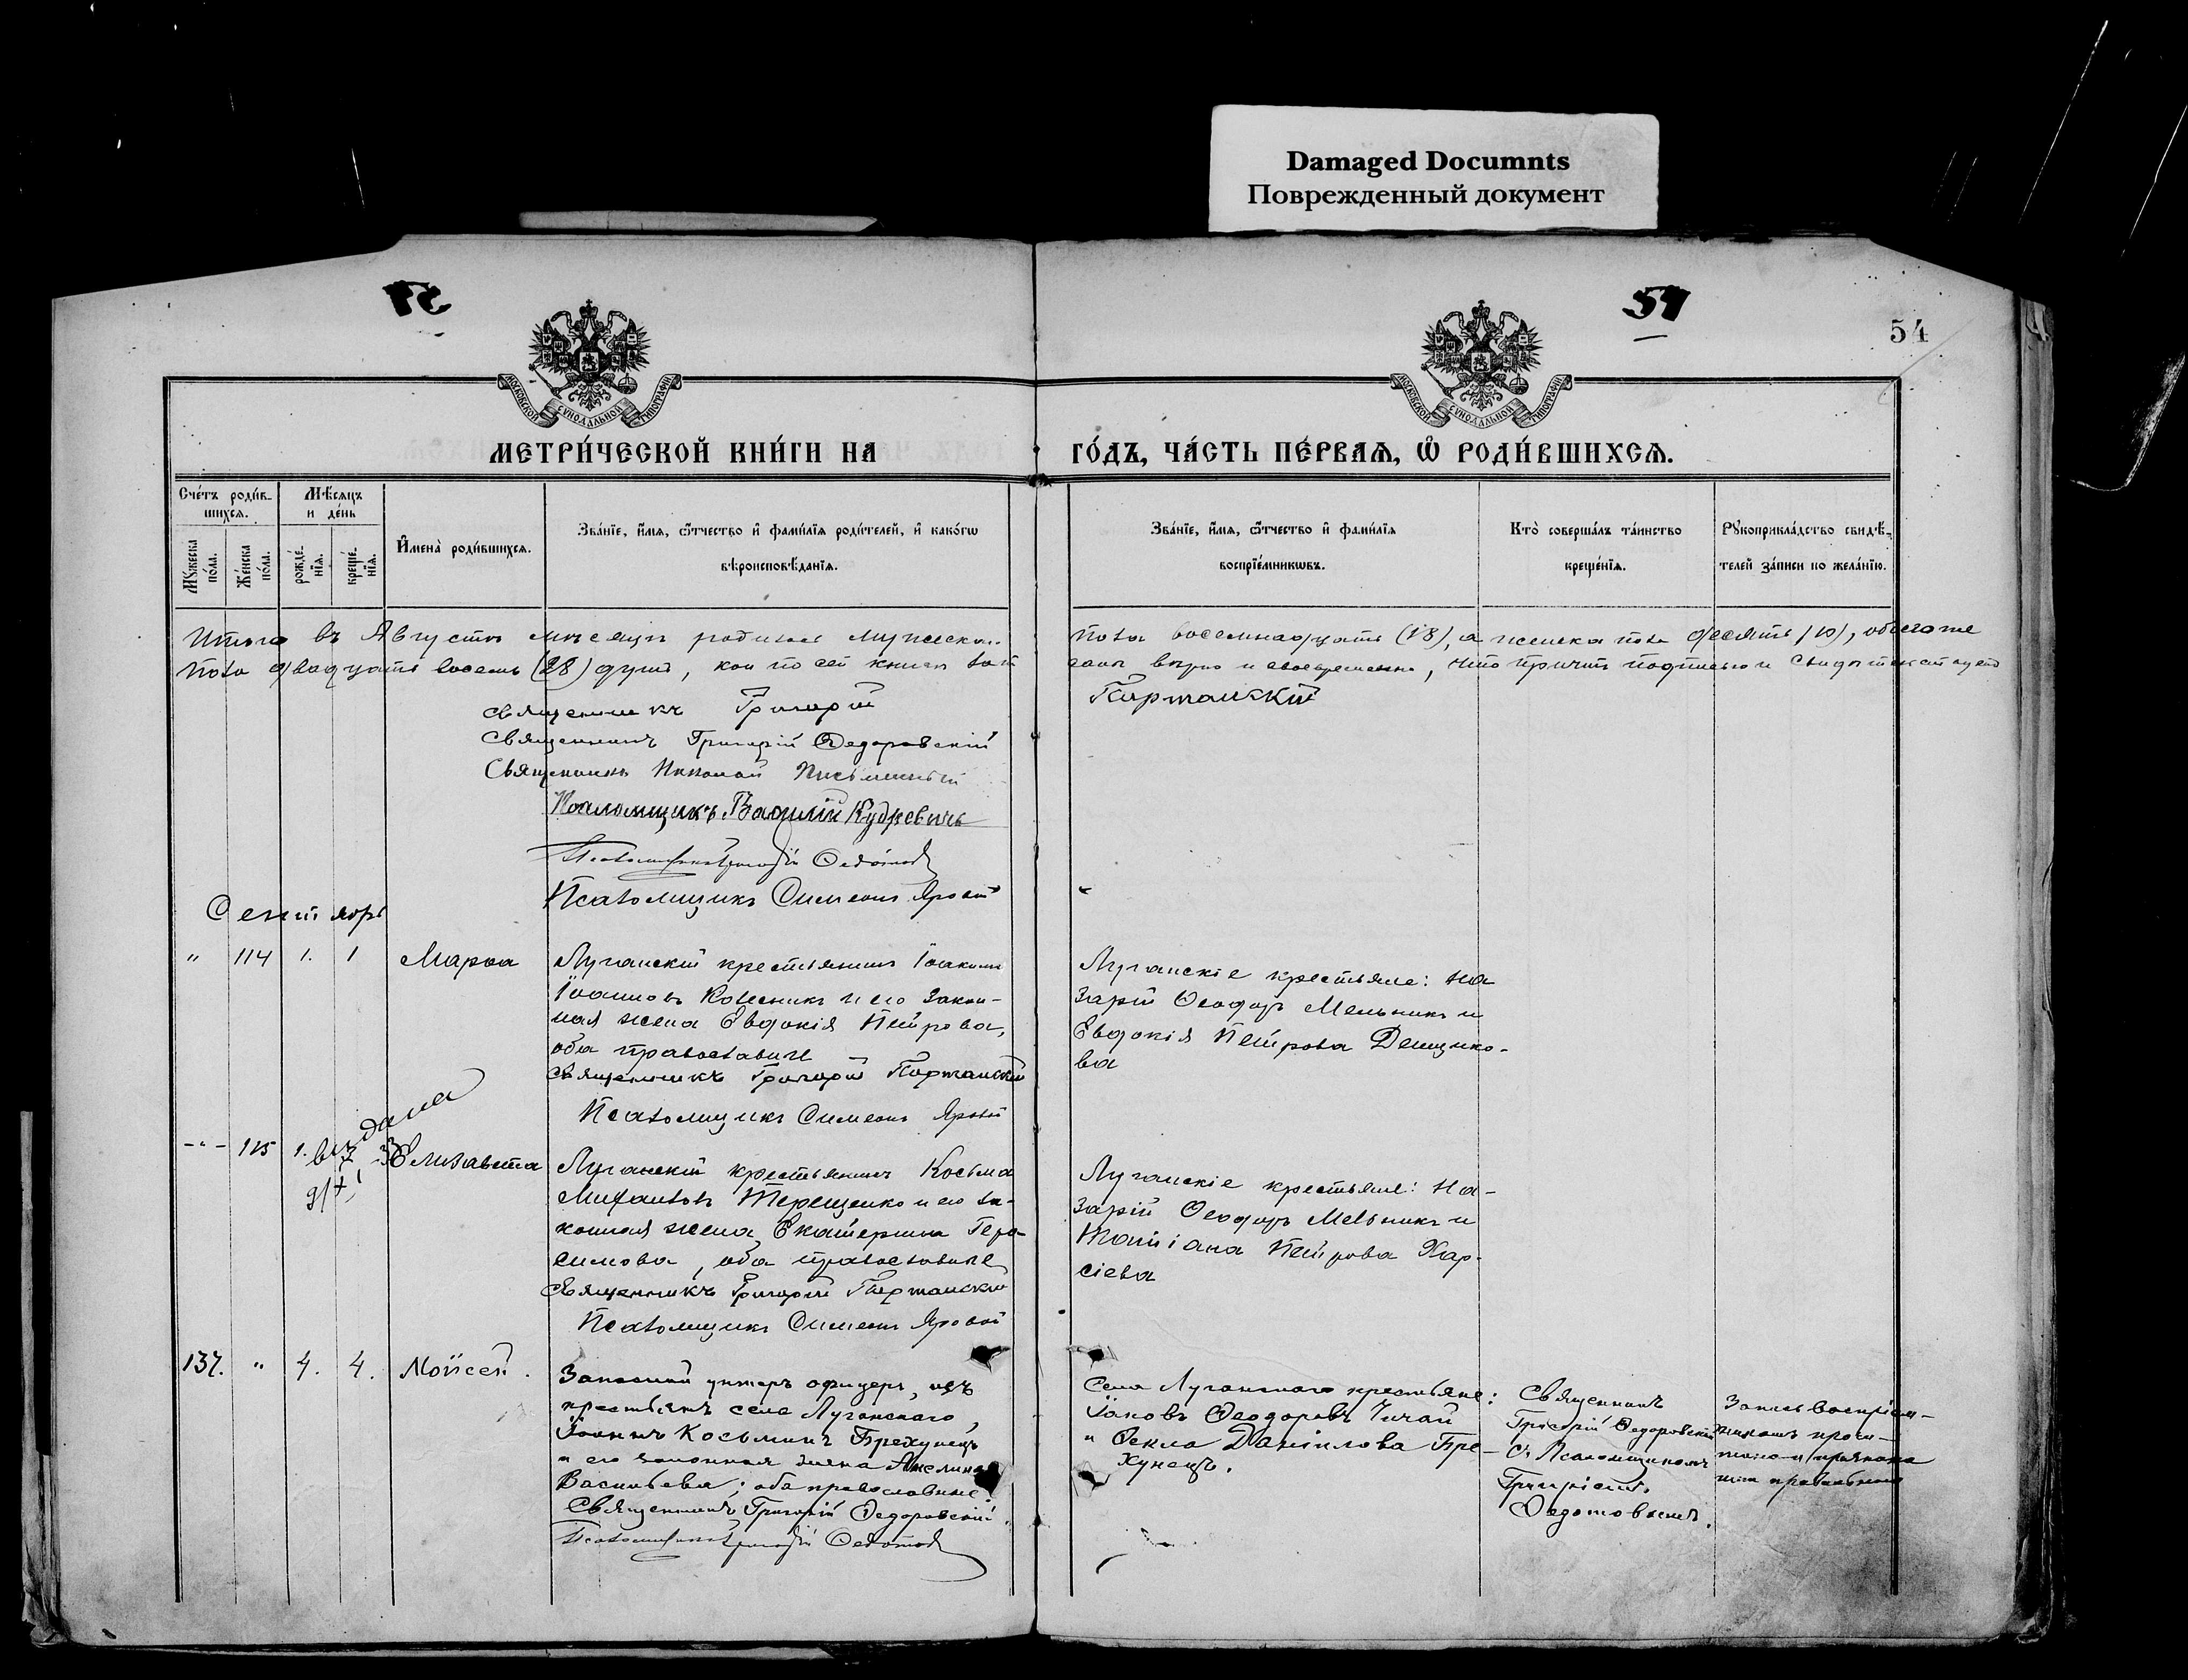 Damaged Documnts
Поврежденный документ
51
51
54
МОСКОВСКОЙ СУНОДАЛЬНОЙ ТИПОГРАФІИ
МОСКОВСКОЙ СУНОДАЛЬНОЙ ТИПОГРАФІИ
МЕТРИ́ЧЕСКОЙ КНИ́ГИ НА
ГО́ДЪ, ЧА́СТЬ ПЕ́РВАѦ, Ѽ РОДИ́ВШИХСѦ.
Сче́тъ роди́в-
шихсѧ.
Мѣ́сѧцъ
и де́нь
Мꙋ́жеска по́ла.
Же́нска по́ла.
рожде́нїѧ.
креще́нїѧ.
И҆мена̀ роди́вшихсѧ.
Зва́нїе, и҆́мѧ, ѻ҆́тчество и҆ фами́лїѧ роди́телей, и҆ како́гѡ
вѣроисповѣ́данїѧ.
Зва́нїе, и҆́мѧ, ѻ҆́тчество и҆ фами́лїѧ
воспрїе́мникѡвъ.
Кто̀ соверша́лъ та́инство
креще́нїѧ.
Рꙋкоприкла́дство свидѣ́-
телей за́писи по жела́нїю.
Итого въ Августѣ мѣсяцѣ родилось мужеска
пола восемнадцать (18), а женска пола десять (10), обоего же
пола двадцать восемь (28) душъ, кои по сей книгѣ
вѣрно и своевременно, что причтъ подписью и свидѣтельствуетъ
Священникъ Григорій
Портанскій
Священникъ Григорій Ѳедоровскій
Священникъ Николай Письменный
Псаломщикъ Василій Кудревичъ
Псаломщикъ Григорій Ѳедотов
Псаломщикъ Симеонъ Яровой
Сентябрь
" 114 1. 1 Марѳа
Луганскій крестьянинъ Іоакимъ
Іоанновъ Колесникъ и его закон-
ная жена Евдокія Петрова,
оба православные
Священникъ Григорій Портанскій
Псаломщикъ Симеонъ Яровой
Луганскіе крестьяне: На
зарій Ѳеодоръ Мельникъ и
Евдокія Петрова Денщико-
ва
выдана
-"- 115 1. 3 Елизавета
Луганскій крестьянинъ Косьма
Митрофановъ Терещенко и его за-
конная жена Екатерина Гера-
симова, оба православные
Священникъ Григорій Портанскій
Псаломщикъ Симеонъ Яровой
Луганскіе крестьяне: На-
зарій Ѳеодоръ Мельникъ и
Татіана Петрова Хар-
сіева
137. " 4. 4. Мойсей.
Запасный унтеръ офицеръ, изъ
крестьянъ села Луганскаго,
Іоаннъ Косьминъ Брехунецъ
и его законная жена Акелина
Васильева; оба православные.
Священникъ Григорій Ѳедоровскій.
Псаломщикъ Григорій Ѳедотов
Села Луганскаго крестьяне:
Іаковъ Ѳеодоровъ Чичай
и Ѳекла Даніилова Бре-
хунецъ.
Священникъ
Григорій Ѳедоровскій
съ Псаломщикомъ
Григоріемъ
Ѳедотовымъ.
Запись воспріем-